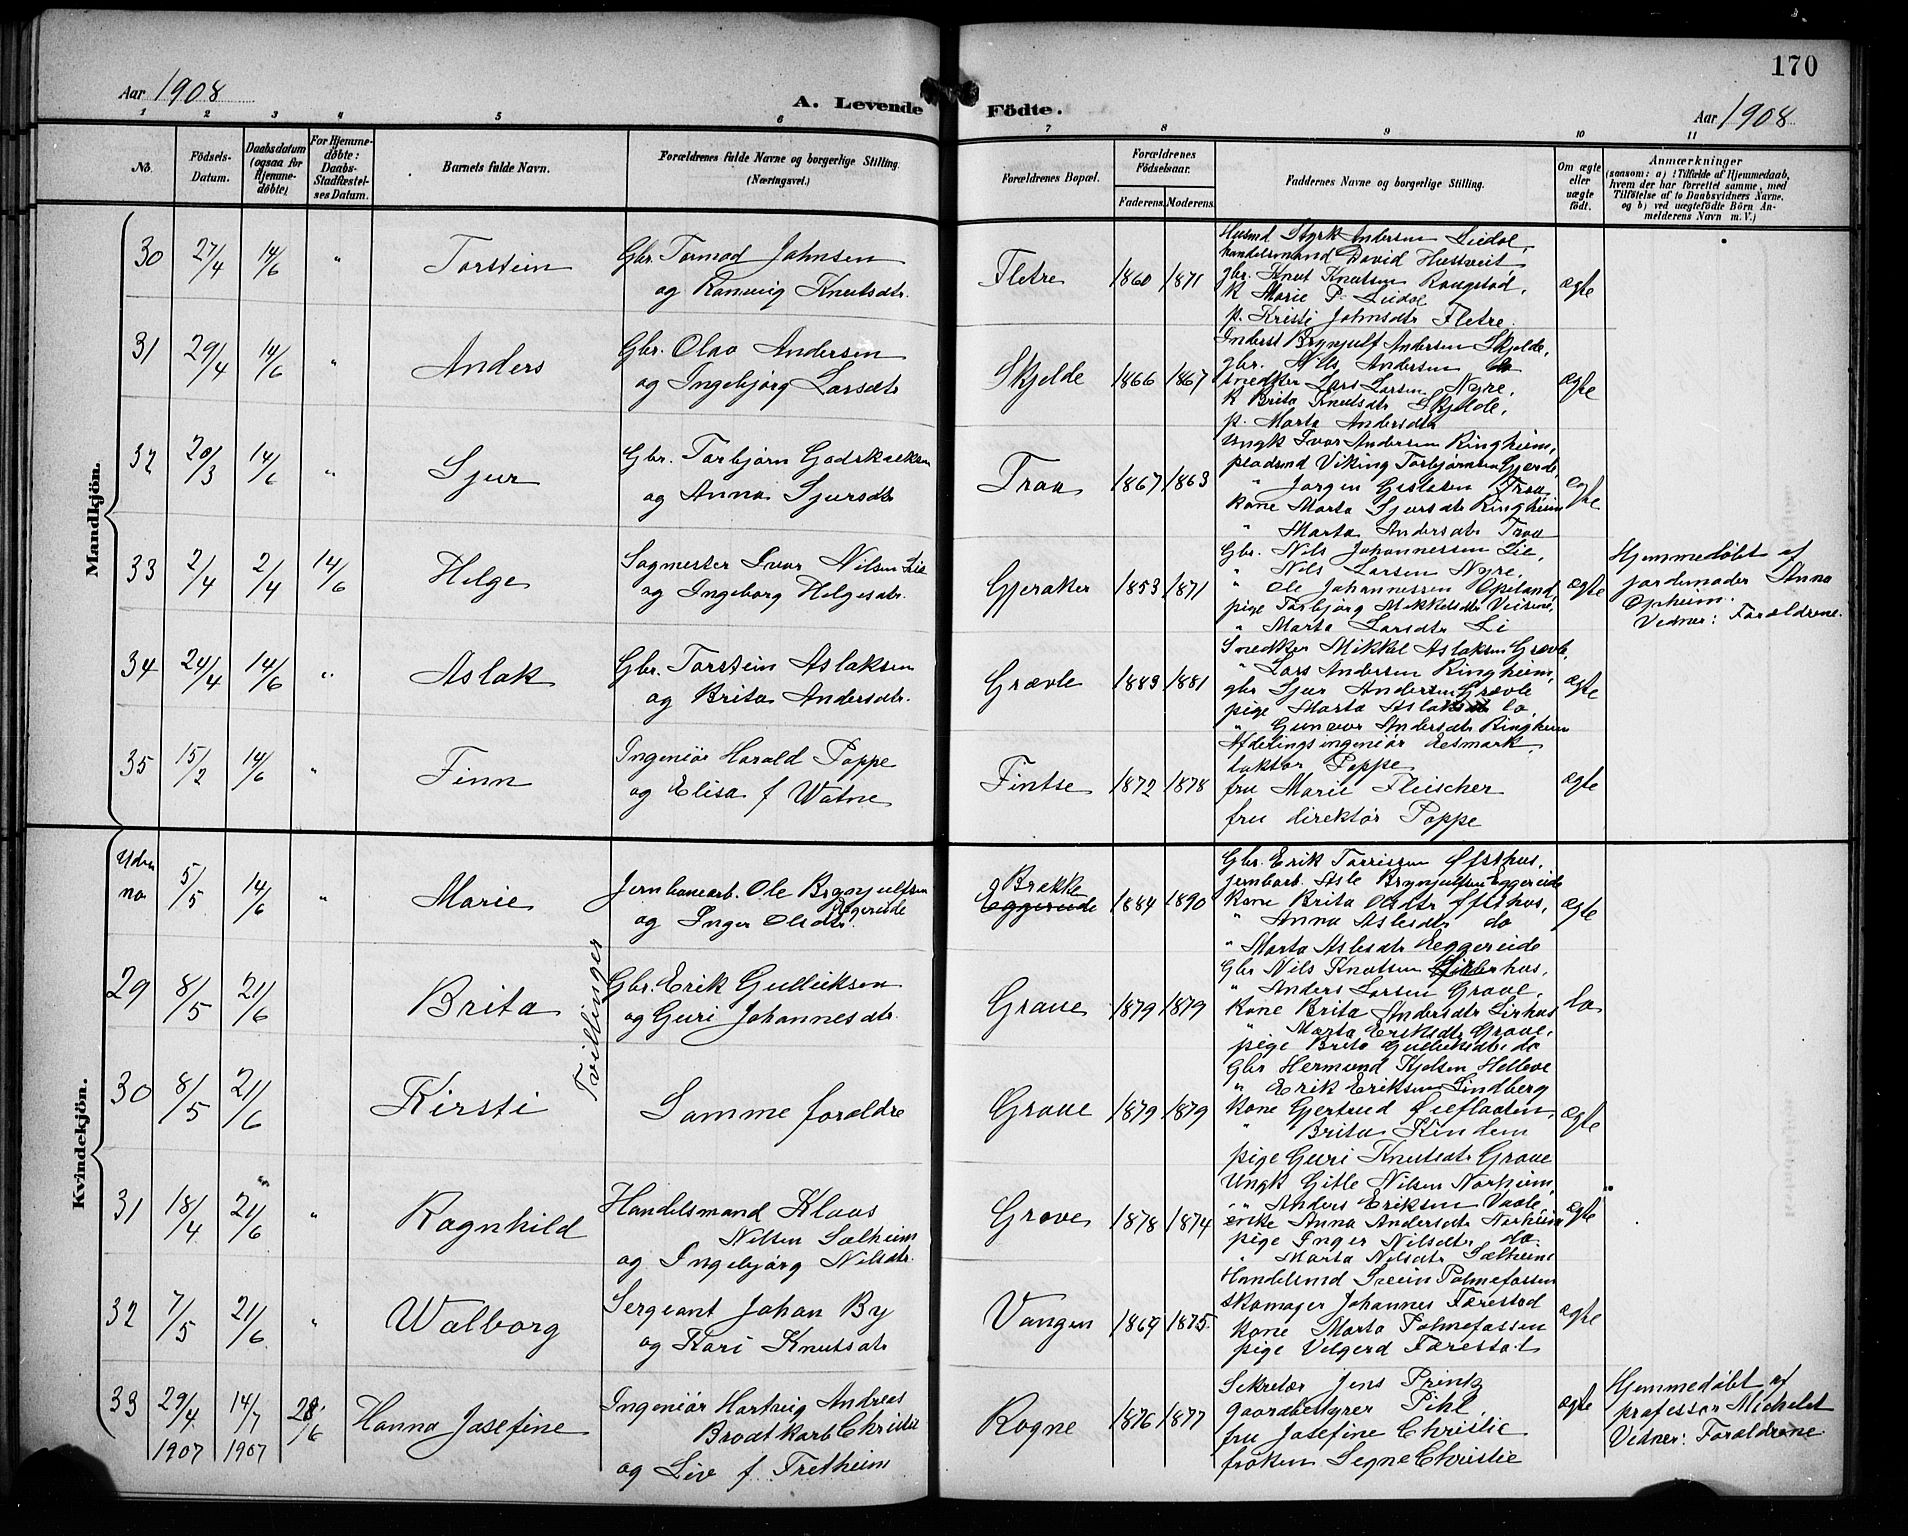 170
Aar 1908
A. Levende Födte.
Aar 1908
1 2 3 4 5 6 7 8 9 10 11
No.
Födsels-Datum.
Daabsdatum (ogsaa for Hjemme-döbte)
For Hjemme-döbte: Daabs-Stadfæstel-ses Datum.
Barnets fulde Navn.
Forældrenes fulde Navne og borgerlige Stilling. (Næringsvei.)
Forældrenes Bopæl.
Forældrenes Födselsaar.
Faderens. Moderens.
Faddernes Navne og borgerlige Stilling.
Om ægte eller uægte födt.
Anmærkninger
(saasom: a) i Tilfælde af Hjemmedaab,
hvem der har forrettet samme, med
Tilföielse af to Daabsvidners Navne,
og b) ved uægtefödte Börn An-
melderens Navn m. V.)
Mandkjön.
30 27/4 14/6 " Torstein
Gbr. Tormod Johnsen
og Ranveig Knutsdtr.
Fletre 1860 1871
Husmd Styrk Andersen Liedal,
handelsmand David Hustveit
gbr. Knut Knutsen Rongstad,
K Marie P. Liedal
p. Kristi Johnsdtr Fletre.
ægte
31 29/4 14/6 " Anders
Gbr. Olav Andersen
og Ingebjørg Larsdtr
Skjelde 1866 1867
Inderst Brynjulf Andersen Skjelde,
gbr. Nils Andersen do
snedker Lars Larsen Nyre,
K Brita Knutsdtr Skjelde,
p. Marta Andersdtr
ægte
32 20/3 14/6 " Sjur
Gbr. Torbjørn Godskalksen
og Anna Sjursdtr
Traa 1867 1863
Ungk Ivar Andersen Ringheim,
pladsmd Viking Torbjørnsen Gjerde,
" Jørgen Gislesen Traa,
kone Marta Sjursdtr Ringheim
" Marta Andersdtr Traa
ægte
33 2/4 2/4 14/6 Helge
Sagmester Ivar Nilsen Lie
og Ingeborg Helgesdtr.
Gjeraker 1853 1871
Gbr. Nils Johannessen Lie,
" Nils Larsen Nyre,
" Ole Johannessen Opeland,
pige Torbjørg Mikkelsdtr
" Marta Larsdtr Li
ægte
Hjemmedøbt af
jordemoder Anna
Opheim.
Vidner: Forældrene.
34 24/4 14/6 " Aslak
Gbr. Torstein Aslaksen
og Brita Andersdtr.
Grævle 1883 1881
Snedker Mikkel Aslaksen Grævle,
" Lars Andersen Ringheim,
gbr Sjur Andersen Grævle
pige Marta Aslaksdtr do
" Gunvor Andersdtr Ringheim
ægte
35 15/2 14/6 " Finn
Ingeniør Harald Poppe
og Elisa f Watne
Fintse 1872 1878
Afdelingsingeniør Esmark,
doktor Poppe
fru Marie Fleischer
fru direktør Poppe
ægte
Kvindekjön.
Uden no 5/5 14/6 " Marie
Jernbanearb. Ole Brynjulfsen
Eggereide
og Inger Olsdtr.
Brekke
Eggereide 1884 1890
Gbr. Erik Torrissen Øfsthus,
jernbarb. Asle Brynjulfsen Eggereide
kone Brita Olsdtr Øfsthus,
" Anna Aslesdtr do
" Marta Aslesdtr Eggereide
ægte
Tvillinger
29 8/5 21/6 Brita
Gbr. Erik Gulleiksen
og Guri Johannesdtr.
Graue 1879 1879
Gbr Nils Knutsen Lirhus,
" Anders Larsen Graue,
kone Brita Andersdtr Lirhus
" Marta Eriksdtr Graue,
pige Brita Gulleiksdtr do
do
30 8/5 21/6 Kirsti
Samme forældre
Graue 1879 1879
Gbr Hermund Kjelsen Helleve
" Erik Eriksen Lindberg
kone Gjertrud
" Brita Kindem
pige Guri Knutsdtr Graue
ægte
31 18/4 21/6 " Ragnhild
Handelsmand Klaas
Nilsen Sælheim
og Ingebjørg Nilsdtr.
Grove 1878 1874
Ungk Gitle Nilsen Norheim,
" Anders Eriksen
enke Anna Andersdtr Norheim
pige Inger Nilsdtr do.
" Marta Nilsdtr Sælheim
ægte
32 7/5 21/6 " Walborg
Sergeant Johan By
og Kari Knutsdtr
Vangen 1869 1875.
Handelsmd Svein Palmefossen
skomager Johannes Færestad
kone Marta Palmefossen
pige Velgerd Færestad
ægte
33 29/4 1907 14/7 1907 28/6 Hanna Josefine
Ingeniør Hartvig Andreas
Brodtkorb Christie
og Liv f. Fretheim
Rogne 1876 1877
Sekretær Jens Printz
gaardbestyrer Pihl,
fru Josefine Christie
frøken Signe Christie
ægte
Hjemmedøbt af
professor Michelet
Vidner: Forældrene